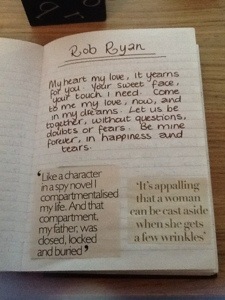 Rob Ryan
My heart my love, it yearns
for you. Your sweet face,
your touch I need. Come
to me my love, now, and
in my dreams. Let us be
together, without questions,
doubts or fears. Be mine
forever, in happiness and
tears.
'Like a character
in a spy novel I
compartmentalised
my life. And that
compartment,
my father, was
closed, locked
and buried'
'It's appalling
that a woman
can be cast aside
when she gets
a few wrinkles'